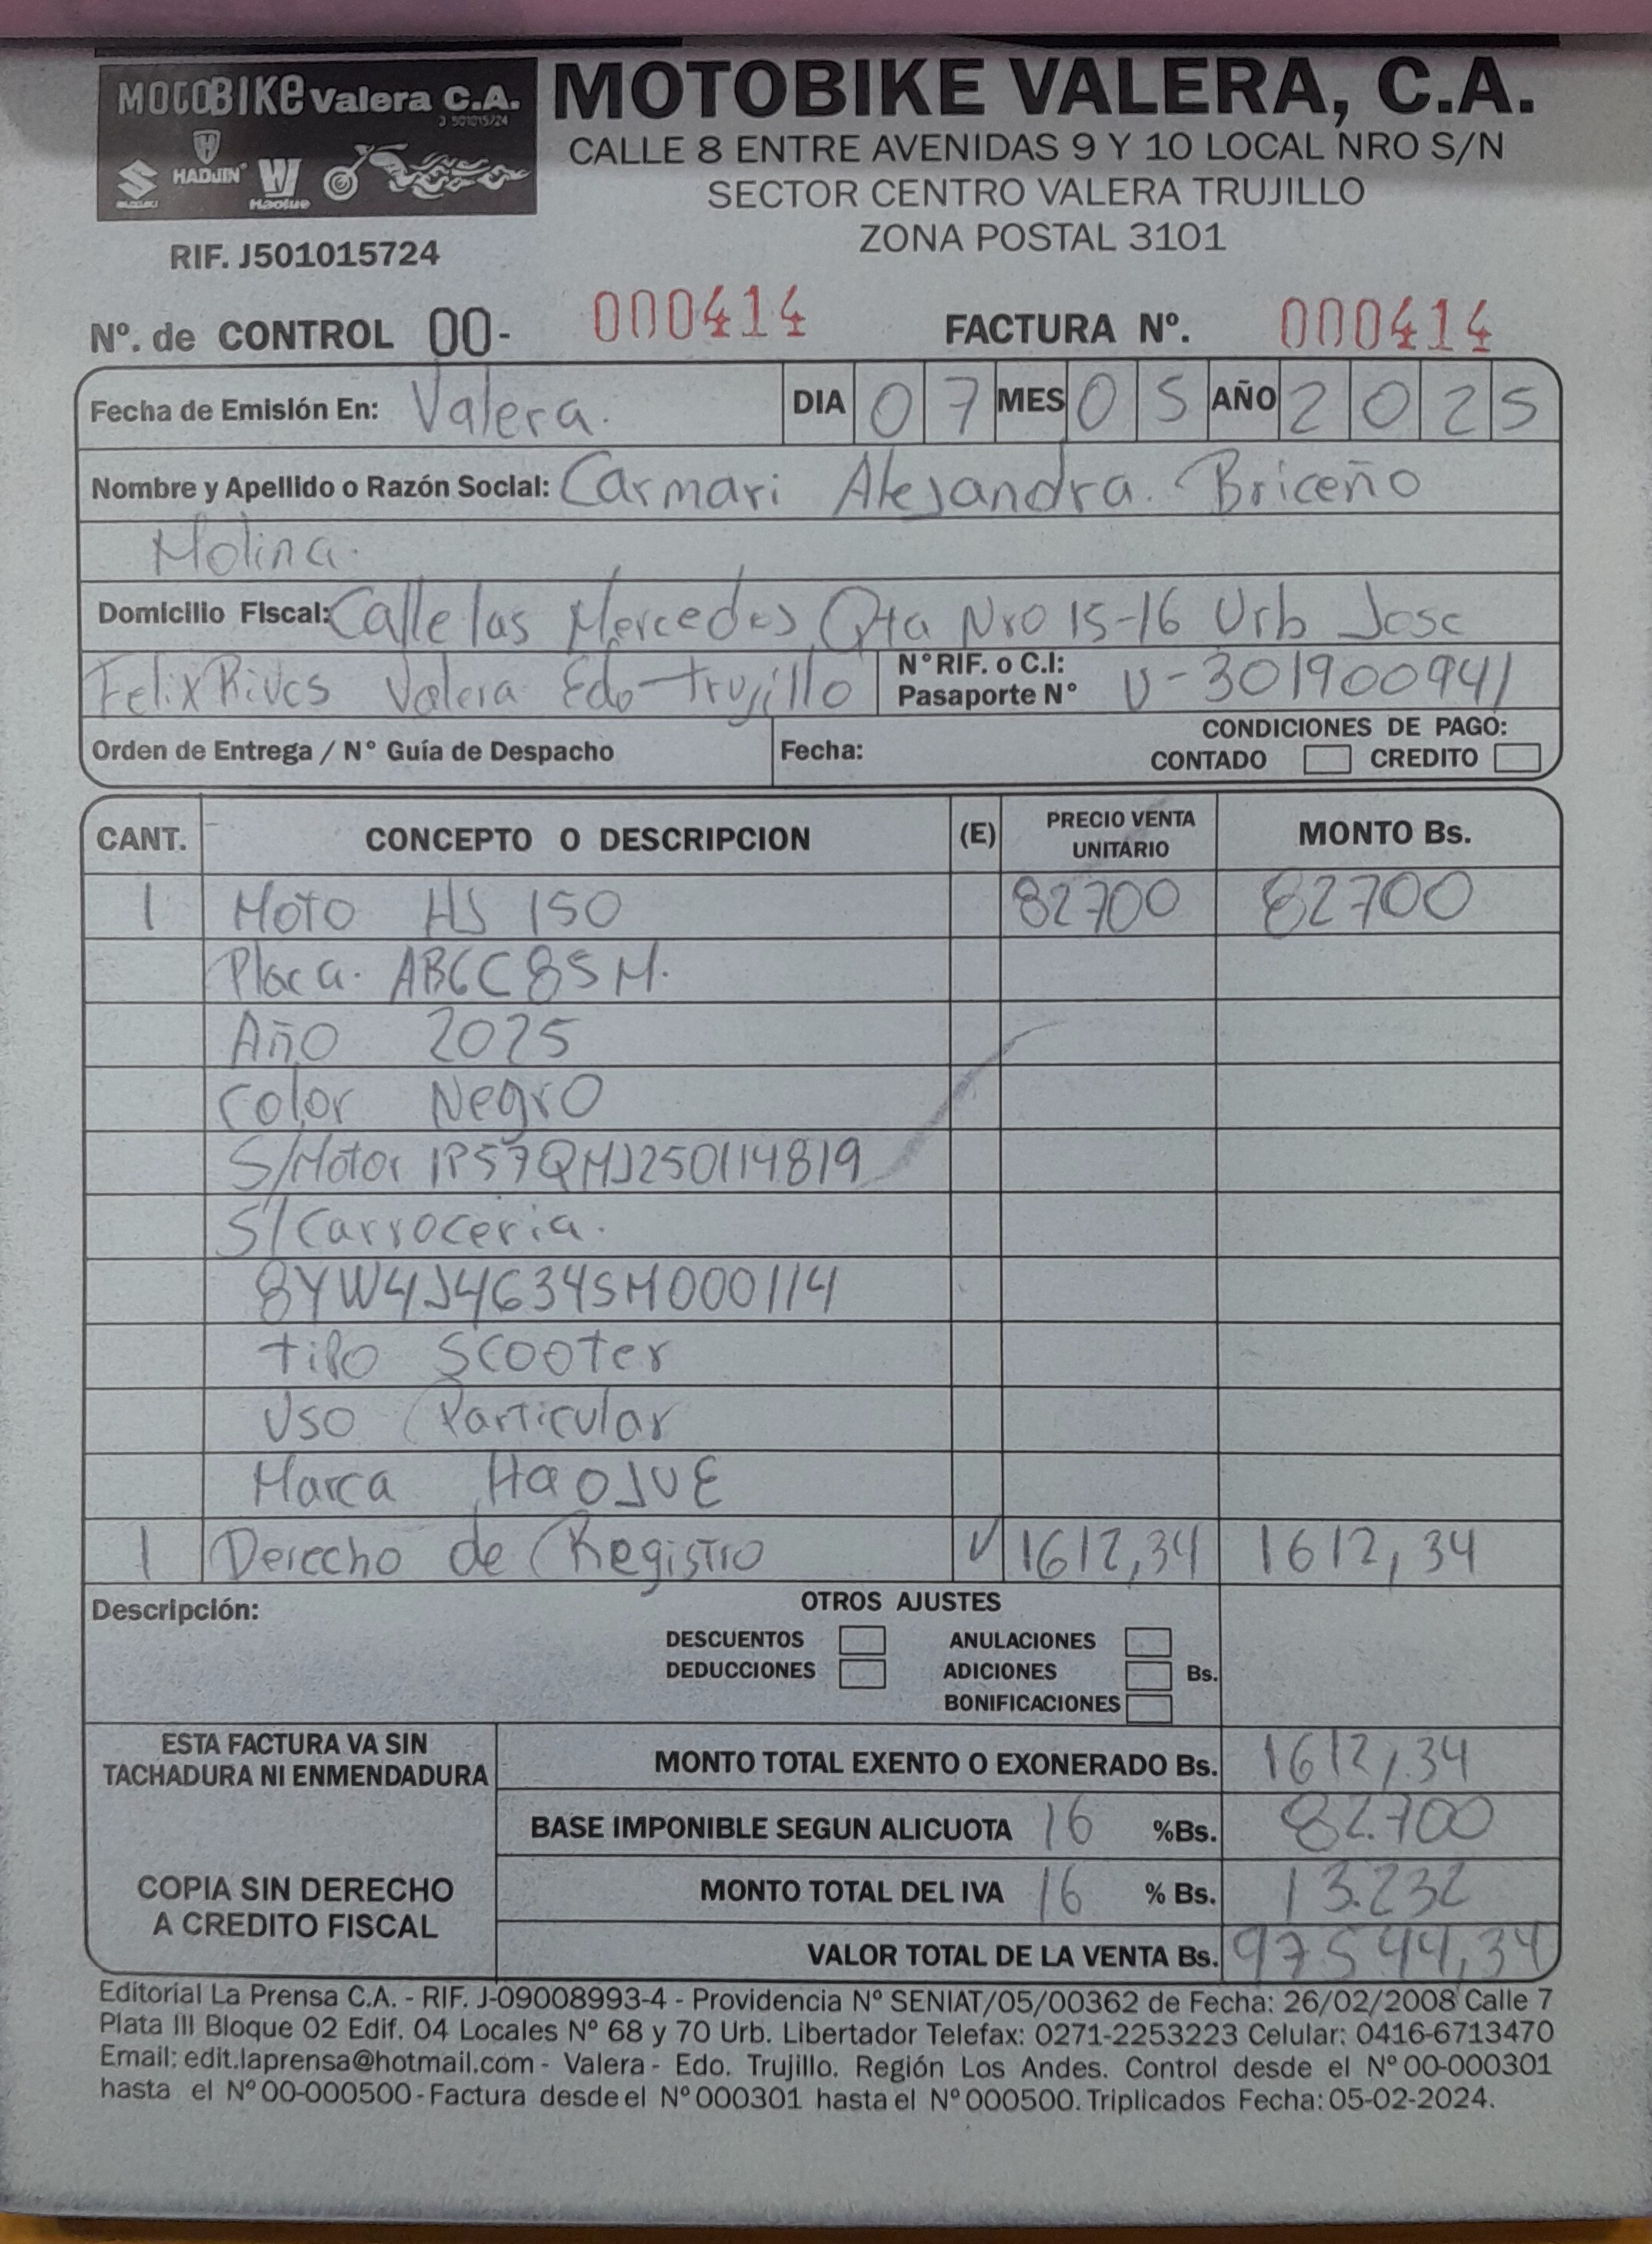 MOTOBIKE Valera C.A.
J 501015724
SUZUKI HAOJIN Haojue
RIF. J501015724
MOTOBIKE VALERA, C.A.
CALLE 8 ENTRE AVENIDAS 9 Y 10 LOCAL NRO S/N
SECTOR CENTRO VALERA TRUJILLO
ZONA POSTAL 3101
Nº. de CONTROL 00- 000414 FACTURA Nº. 000414
Fecha de Emisión En: Valera. DIA 07 MES 05 AÑO 2025
Nombre y Apellido o Razón Social: Carmari Alejandra. Briceño
Molina.
Domicilio Fiscal: Calle las Mercedes Qta Nro 15-16 Urb Jose
Felix Rivas Valera Edo Trujillo N°RIF. o C.I: Pasaporte N° V-301900941
Orden de Entrega / N° Guía de Despacho Fecha: CONDICIONES DE PAGO:
CONTADO CREDITO
CANT. CONCEPTO O DESCRIPCION (E) PRECIO VENTA UNITARIO MONTO Bs.
1 Moto HJ 150 82700 82700
Placa. AB6C85M.
Año 2025
Color Negro
S/Motor 1P57QMJ250114819
S/Carroceria.
8YW4J4634SM000114
Tipo Scooter
Uso Particular
Marca HAOJUE
1 Derecho de Registro ✓ 1612,34 1612,34
Descripción: OTROS AJUSTES
DESCUENTOS ANULACIONES
DEDUCCIONES ADICIONES Bs.
BONIFICACIONES
ESTA FACTURA VA SIN
TACHADURA NI ENMENDADURA
MONTO TOTAL EXENTO O EXONERADO Bs. 1612,34
BASE IMPONIBLE SEGUN ALICUOTA 16 %Bs. 82.700
COPIA SIN DERECHO
A CREDITO FISCAL
MONTO TOTAL DEL IVA 16 % Bs. 13.232
VALOR TOTAL DE LA VENTA Bs. 97544,34
Editorial La Prensa C.A. - RIF. J-09008993-4 - Providencia Nº SENIAT/05/00362 de Fecha: 26/02/2008 Calle 7
Plata III Bloque 02 Edif. 04 Locales Nº 68 y 70 Urb. Libertador Telefax: 0271-2253223 Celular: 0416-6713470
Email: edit.laprensa@hotmail.com - Valera - Edo. Trujillo. Región Los Andes. Control desde el Nº 00-000301
hasta el Nº 00-000500 - Factura desde el Nº 000301 hasta el Nº 000500. Triplicados Fecha: 05-02-2024.